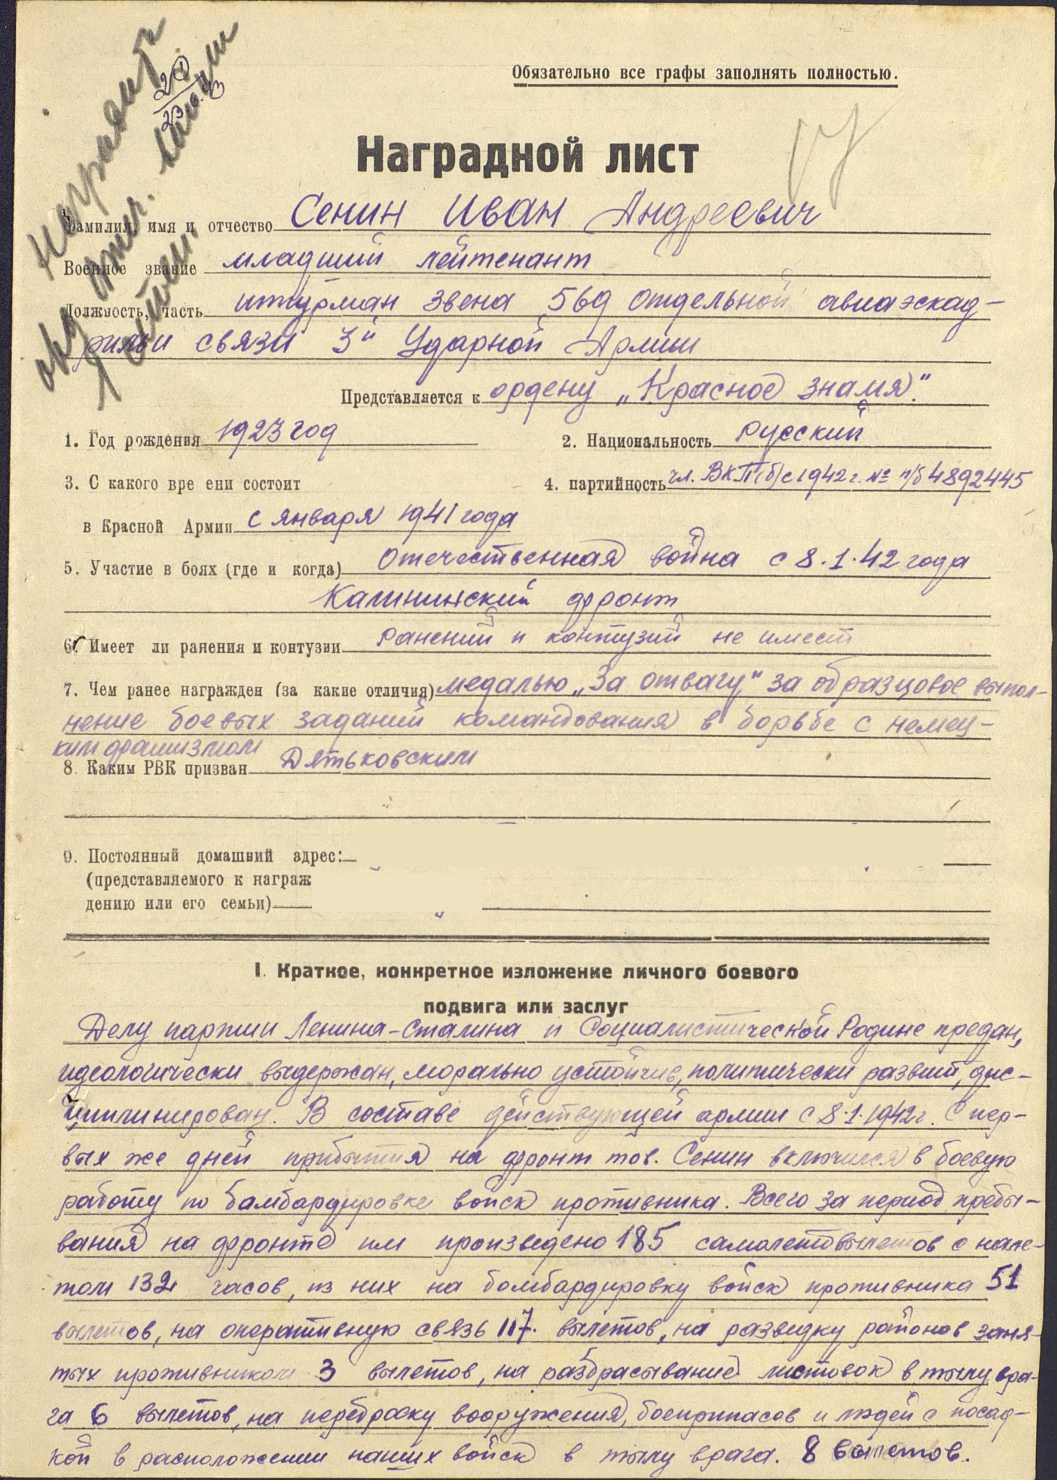 Обязательно все графы заполнять полностью.
Наградить
орд. Отеч. войны
I степени
Наградной лист
Фамилия, имя и отчество Сенин Иван Андреевич
Военное звание младший лейтенант
Должность, часть штурман звена 569 отдельной авиаэскад-
рильи связи 3й Ударной Армии
Представляется к ордену „Красное знамя".
1. Год рождения 1923 год 2. Национальность русский
3. С какого вре ени состоит 4. партийность чл. ВКП(б) с 1942 г. № п/б 4892445
в Красной Армии с января 1941 года
5. Участие в боях (где и когда) Отечественная война с 8.1.42 года
Калининский фронт
6. Имеет ли ранения и контузии ранений и контузий не имеет
7. Чем ранее награжден (за какие отличия) медалью „За отвагу" за образцовое выпол-
нение боевых заданий командования в борьбе с немец-
ким фашизмом
8. Каким РВК призван Дятьковским
9. Постоянный домашний адрес:
(представляемого к награж
дению или его семьи)
I. Краткое, конкретное изложение личного боевого
подвига или заслуг
Делу партии Ленина-Сталина и Социалистической Родине предан,
идеологически выдержан, морально устойчив, политически развит, дис-
циплинирован. В составе действующей армии с 8.1.1942 г. С пер-
вых же дней прибытия на фронт тов. Сенин включился в боевую
работу по бамбардировке войск противника. Всего за период пребы-
вания на фронте им произведено 185 самолетовылетов с нале-
том 132 часов, из них на бомбардировку войск противника 51
вылетов, на оперативную связь 117 вылетов, на разведку районов заня-
тых противником 3 вылетов, на разбрасывание листовок в тылу вра-
га 6 вылетов, на переброску вооружения, боеприпасов и людей с посад-
кой в расположении наших войск в тылу врага. 8 вылетов.